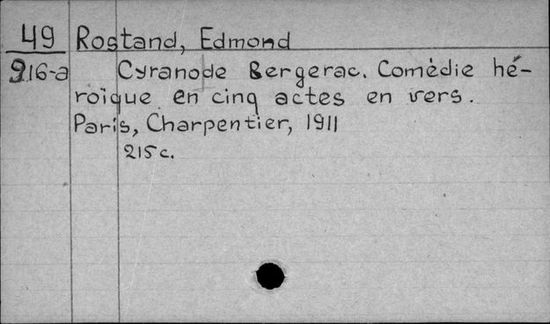 49 Rostand, Edmond
916-a Cyrano de Bergerac. Comèdie hé-
roïque en cinq actes en vers.
Paris, Charpentier, 1911
215 c.